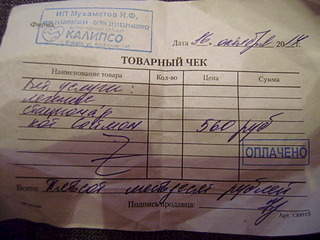 ИП Мухаметов Я.Ф.
КАЛИПСО
Фирма
Дата 16 октября 2018.
ТОВАРНЫЙ ЧЕК
Наименование товара Кол-во Цена Сумма
Вет услуги
лечение
стационар
560 руб
ОПЛАЧЕНО
Всего: Пятьсот шестьдесят рублей
Подпись продавца